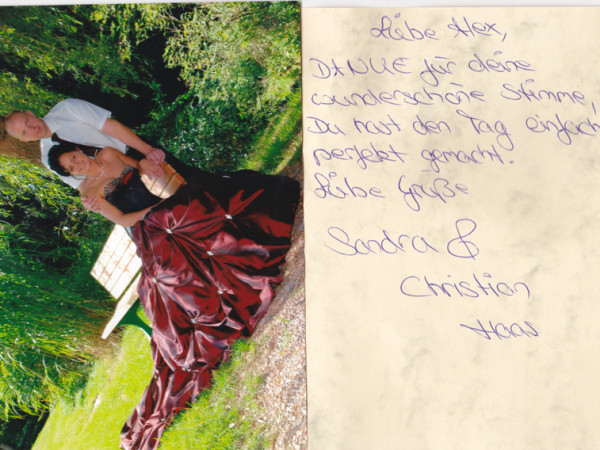 Liebe Alex,
DANKE für deine
wunderschöne Stimme,
Du hast den Tag einfach
perfekt gemacht.
Liebe Grüße
Sandra &
Christian
Haas